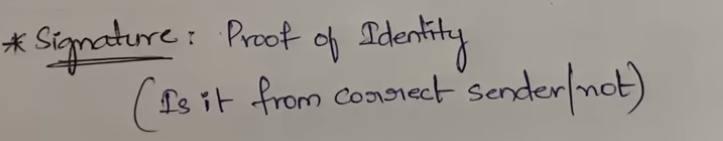 * Signature : Proof of Identity
(Is it from correct sender/not)